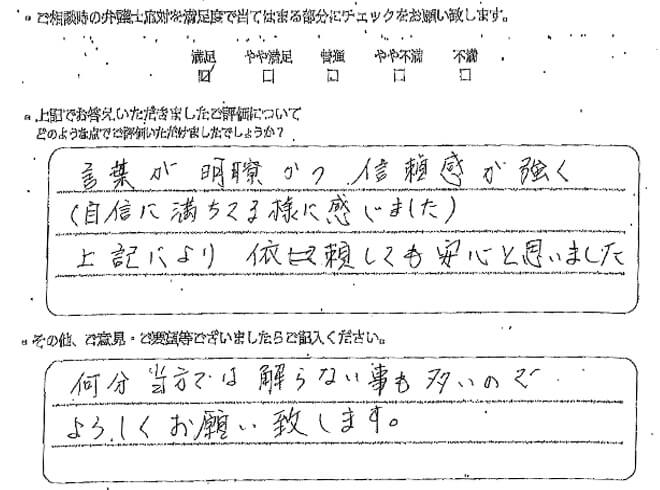 ご相談時の弁護士応対を満足度で当てはまる部分にチェックをお願い致します。
満足 やや満足 普通 やや不満 不満
☑ □ □ □ □
上記でお答えいただきましたご評価について
どのような点でご評価いただけましたでしょうか?
言葉が明瞭かつ信頼感が強く
(自信に満ちてる様に感じました)
上記により依頼しても安心と思いました
その他、ご意見・ご要望等ございましたらご記入ください。
何分当方では解らない事も多いので
よろしくお願い致します。